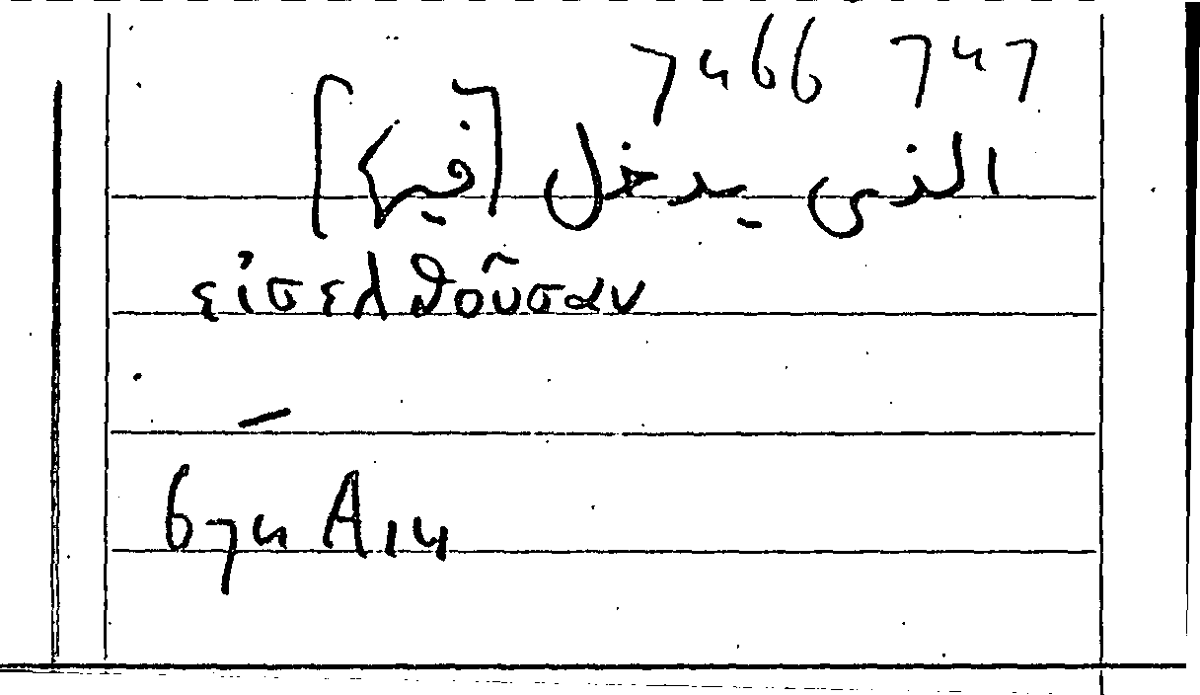 7466 747
الذى يدخل [فيها]
εἰσελθοῦσαν
—
674 A 14